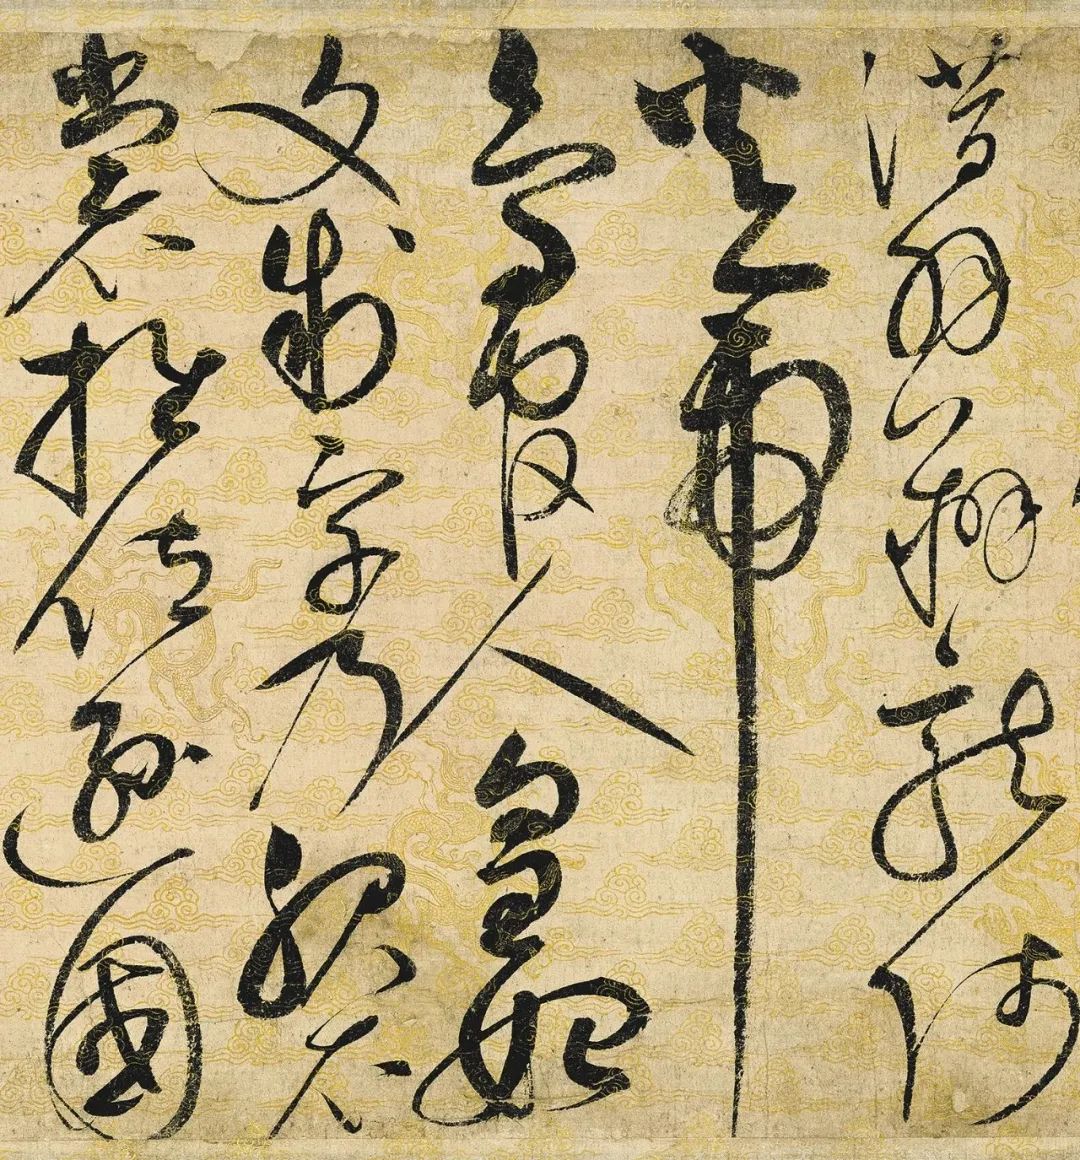 潛羽翔龍師
火帝
鳥官人皇始
文制字乃服衣
裳推位遜國